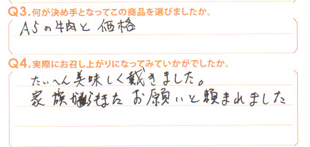 Q3.何が決め手となってこの商品を選びましたか。
A5の牛肉と価格
Q4.実際にお召し上がりになってみていかがでしたか。
たいへん美味しく戴きました。
家族からもまたお願いと頼まれました